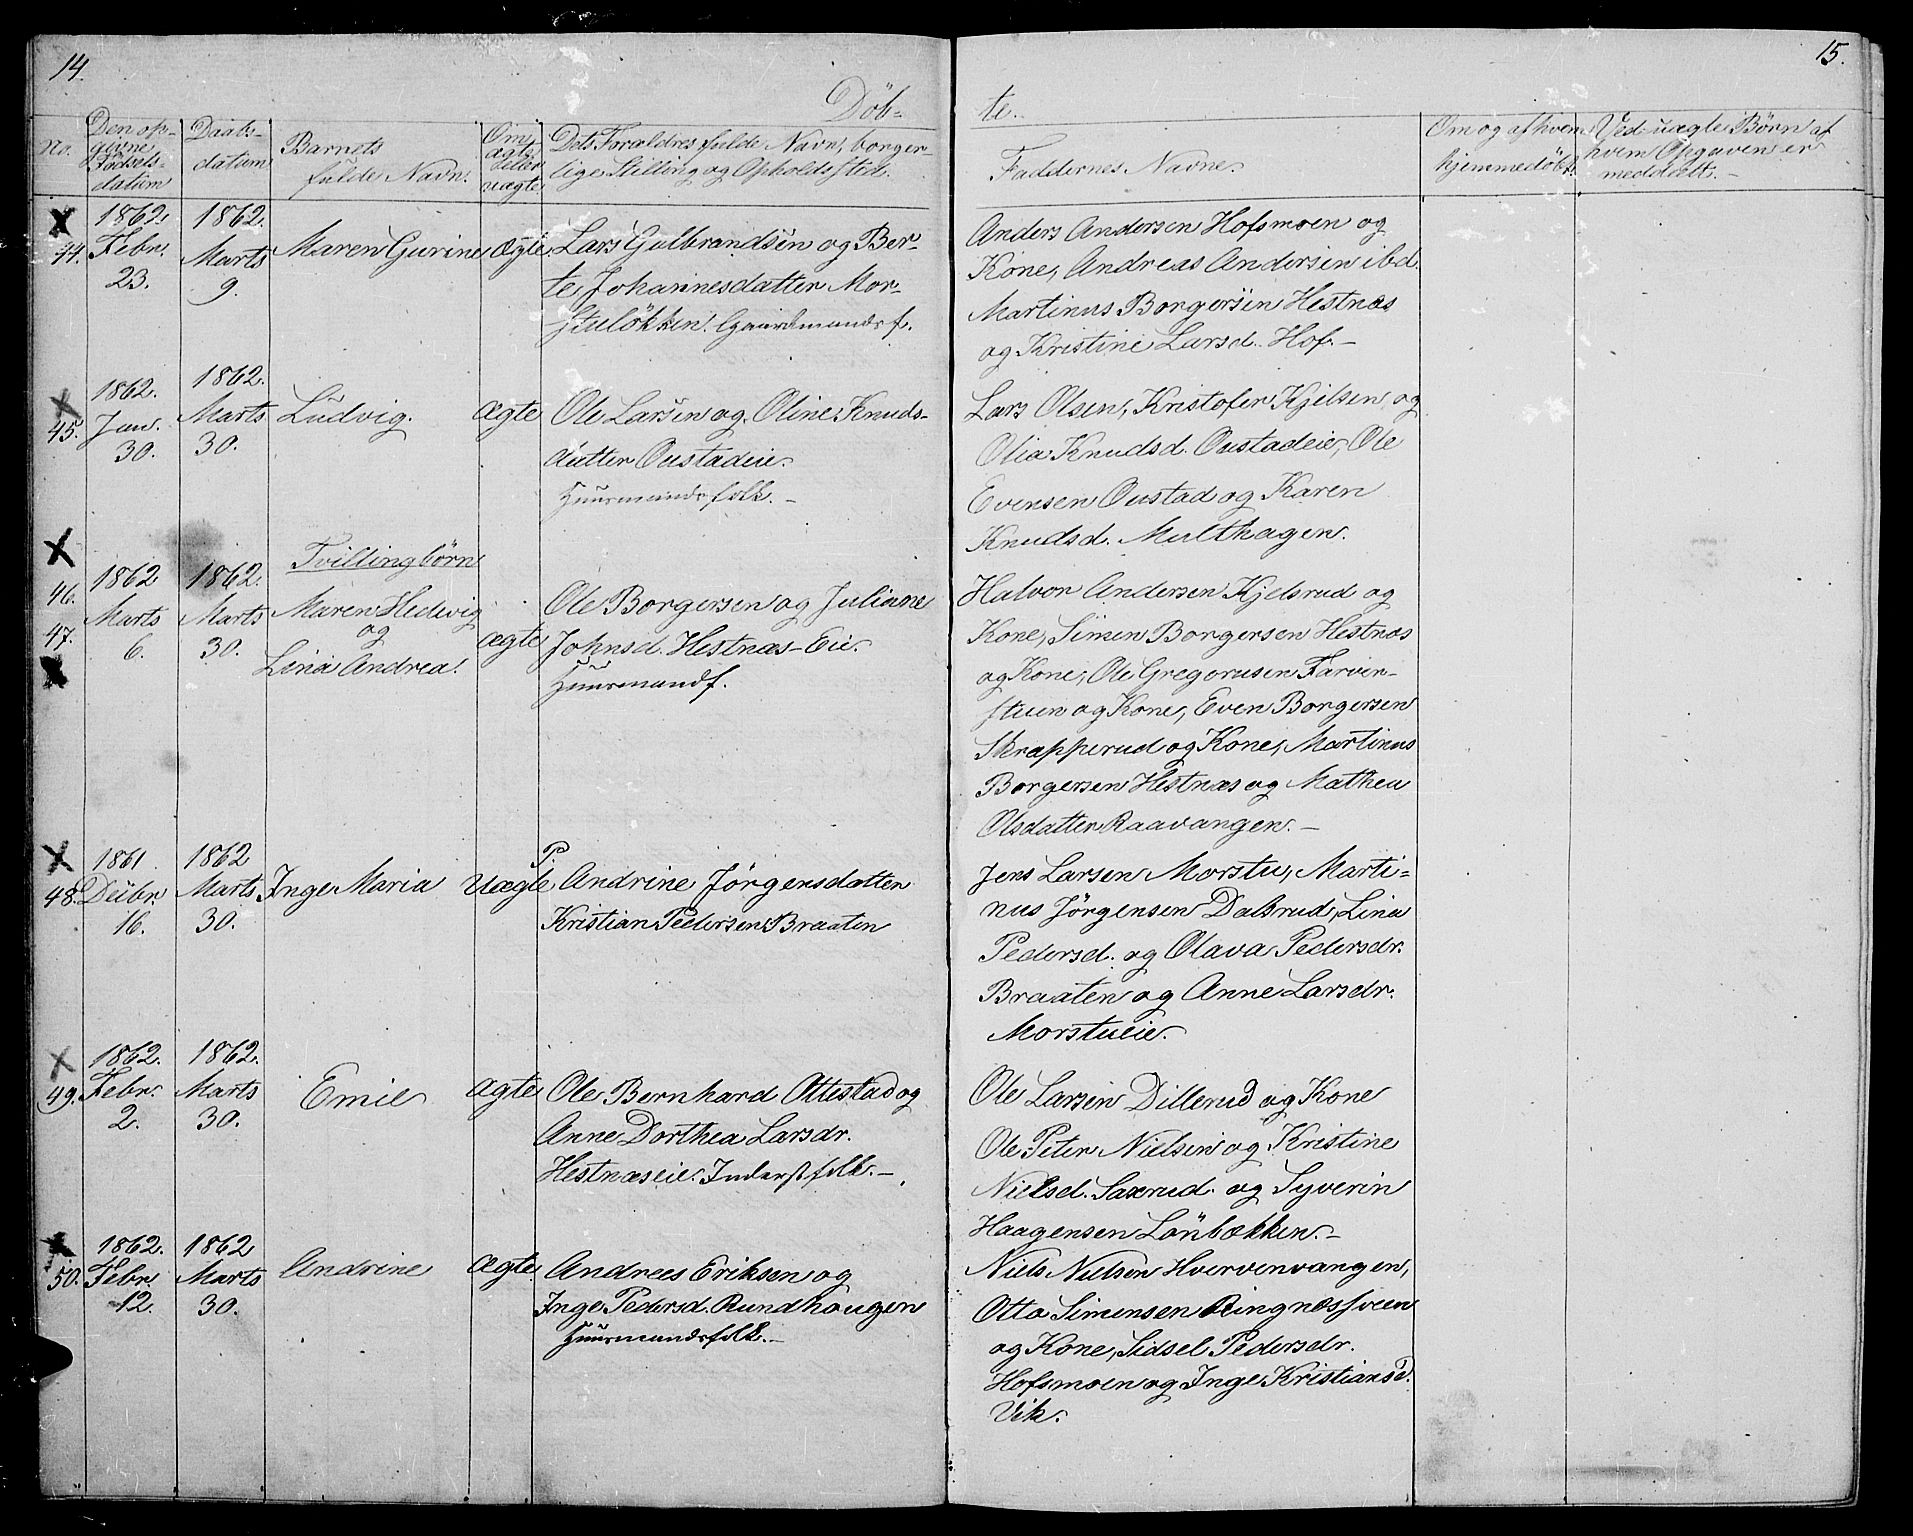 14.
15.
Döb-
te.
No.
Den op-
givne
Fødsels-
datum
Daabs-
datum
Barnets
fulde Navn.
Om
ægte
eller
uægte
Dets Forældres fulde Navn, borger-
lige Stilling og Opholdssted.
Faddernes Navne.
Om og af hvem
hjemmedöbt.
Ved uægte Børn af
hvem Opgaven er
meddelt.-
44.
1862.
Febr.
23.
1862.
Marts
9.
Maren Gurine
Ægte
Lars Gulbrandsen og Ber-
te Johannesdatter Mor-
stulökken. Gaardmandsf.
Anders Andersen Hofsmoen og
Kone, Andreas Andersen ibd.
Martinus Borgersen Hestnæs
og Kristine Larsd. Hof.-
45.
1862.
Jan.
30.
1862.
Marts
30.
Ludvig.
Ægte
Ole Larsen og Oline Knuds-
datter Oustadeie.
Huusmandsfolk.-
Lars Olsen, Kristofer Kjelsen og
Olia Knudsd. Oustadeie, Ole
Evensen Oustad og Karen
Knudsd. Multhagen.
46.
47.
1862
Marts
6.
1862.
Marts
30.
Tvillingbörn
Maren Hedvig
og
Lina Andrea.
ægte
Ole Borgersen og Juliane
Johnsd. Hestnæs-Eie.
Huusmandf.
Halvor Andersen Kjelsrud og
Kone, Simen Borgersen Hestnæs
og Kone, Ole Gregorusen Farver-
stuen og Kone, Even Borgersen
Skrapperud og Kone, Martinus
Borgersen Hestnæs og Mathea
Olsdatter Raavangen.-
48.
1861
Decbr.
16.
1862
Marts
30.
Inge Maria
Uægte
P.
Andrine Jörgensdatter
Kristian Pedersen Braaten
Jens Larsen Morstu, Marti-
nus Jörgensen Dalsrud, Lina
Pedersd. og Olava Pedersdr.
Braaten og Anne Larsdr.
Morstueie.
49.
1862.
Febr.
2.
1862.
Marts
30.
Emil
Ægte
Ole Bernhard Ottestad og
Anne Dorthea Larsdr.
Hestnæseie. Inderstfolk.-
Ole Larsen Dillerud og Kone
Ole Peter Nielsen og Kristine
Nielsd. Saxrud og Syverin
Haagensen Lönbækken.-
50.
1862.
Febr.
12.
1862
Marts
30.
Andrine
Ægte.
Andrees Eriksen og
Inge Pedersd. Rundhaugen
Huusmandsfolk.-
Niels Nielsen Hvervenvangen,
Otto Simensen Ringnæssveen
og Kone, Sidsel Pedersdr.
Hofsmoen og Inge Kristiansd.
Vik.